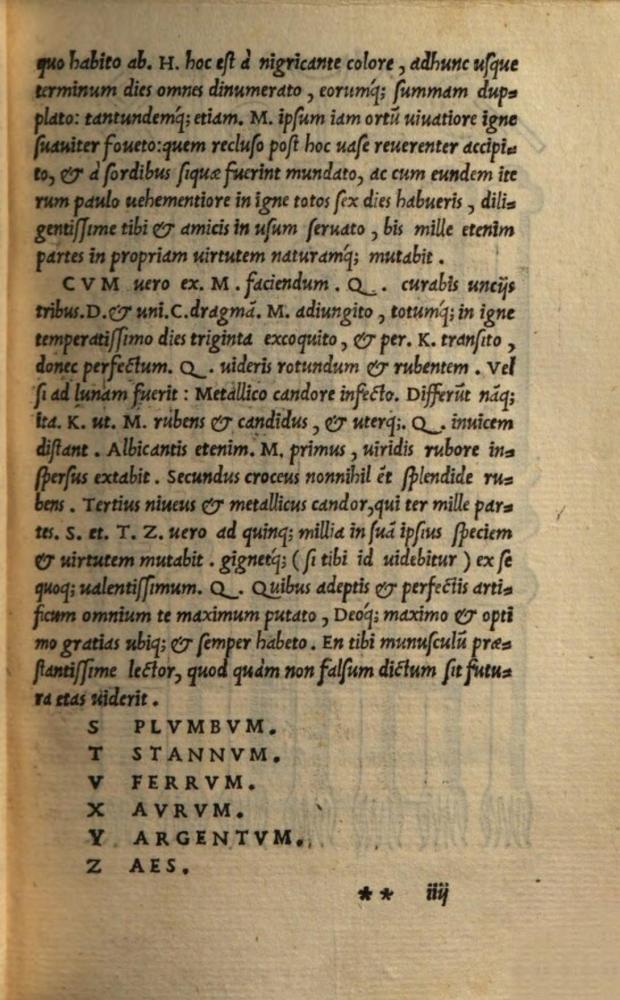 quo habito ab. H. hoc est à nigricante colore, adhunc usque
terminum dies omnes dinumerato, eorumq́; summam dup⸗
plato: tantundemq́; etiam. M. ipsum iam ortũ uiuatiore igne
suauiter foueto: quem recluso post hoc uase reuerenter accipi⸗
to, & à sordibus siquæ fuerint mundato, ac cum eundem ite
rum paulo uehementiore in igne totos sex dies habueris, dili⸗
gentissime tibi & amicis in usum seruato, bis mille etenim
partes in propriam uirtutem naturamq́; mutabit.
CVM uero ex. M. faciendum. Q. curabis uncijs
tribus. D. & uni. C. dragmã. M. adiungito, totumq́; in igne
temperatissimo dies triginta excoquito, & per. K. transito,
donec perfectum. Q. uideris rotundum & rubentem. Vel
si ad lunam fuerit: Metallico candore infecto. Differũt nãq;
ita. K. ut. M. rubens & candidus, & uterq;. Q. inuicem
distant. Albicantis etenim. M. primus, uiridis rubore in⸗
spersus extabit. Secundus croceus nonnihil ẽt splendide ru⸗
bens. Tertius niueus & metallicus candor, qui ter mille par⸗
tes. S. et. T. Z. uero ad quinq; millia in suã ipsius speciem
& uirtutem mutabit. gignetq́; (si tibi id uidebitur) ex se
quoq; ualentissimum. Q. Quibus adeptis & perfectis arti⸗
ficum omnium te maximum putato, Deoq́; maximo & opti
mo gratias ubiq; & semper habeto. En tibi munusculũ præ⸗
stantissime lector, quod quàm non falsum dictum sit futu⸗
ra etas uiderit.
S PLVMBVM.
T STANNVM.
V FERRVM.
X AVRVM.
Y ARGENTVM.
Z AES.
** iiij